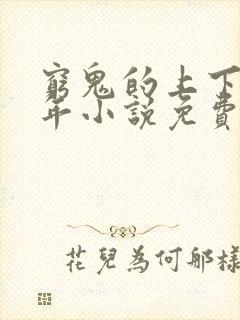 窮鬼的上下
年小說免費
花兒為何那樣